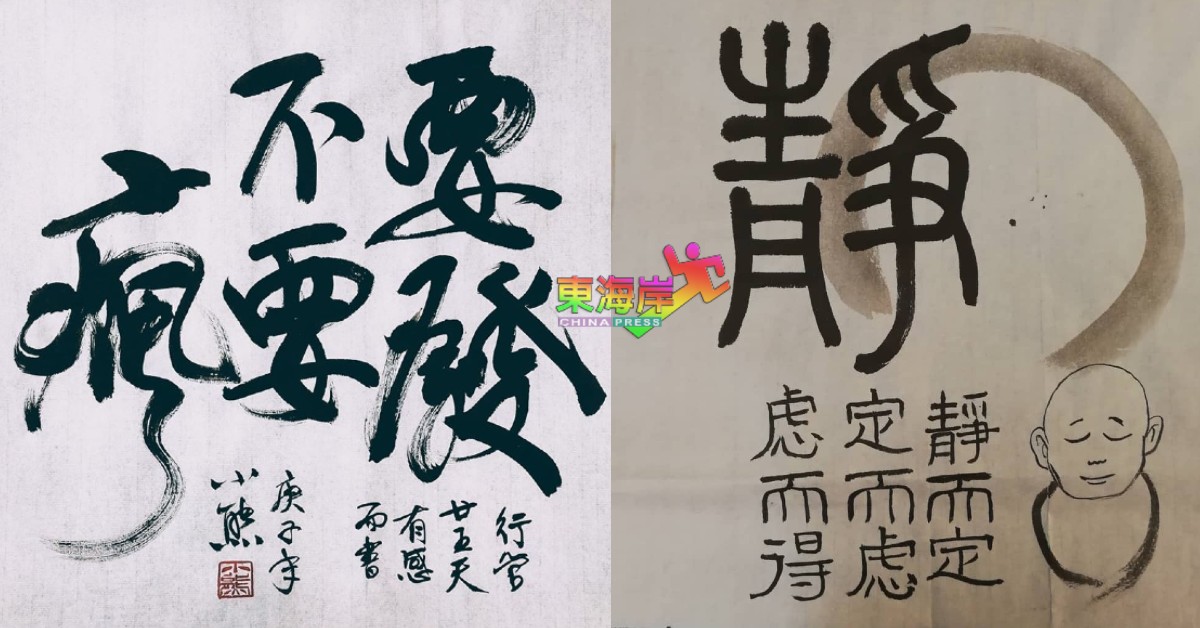 要發
不要
瘋
行管
廿五天
有感
而書
庚子年
小熊
小熊
東海岸
CHINA PRESS
靜
靜而定
定而虑
虑而得